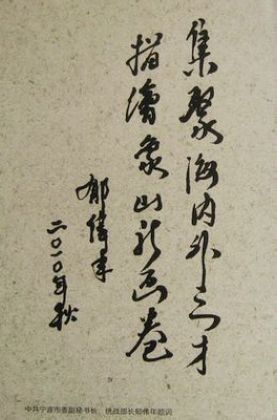 集聚海内外之才
描繪象山新画卷
郁偉年
二〇一〇年秋
中共宁波市委副秘书长、统战部长郁伟年题词